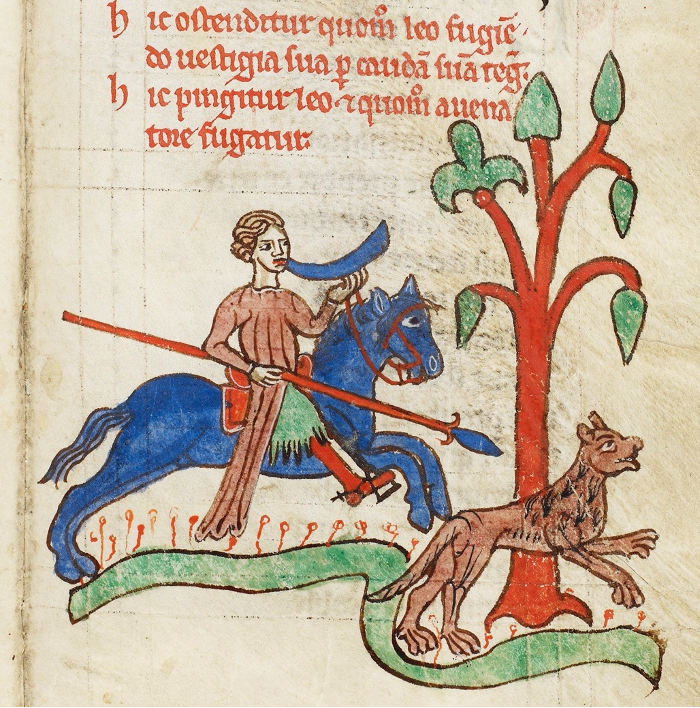 hic ostenditur quom̅ leo fugie̅
do uestigia sua p̲ cauda̅ sua̅ teg̅.
hic pingitur leo ⁊ quom̅ auena
tore fugatur: